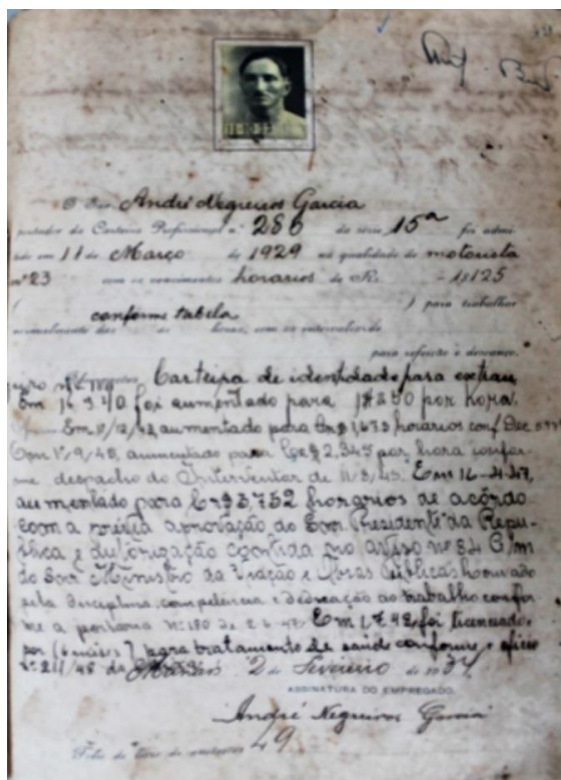 O Snr. André Negreiros Garcia
portador da Carteira Profissional n.º 286 da série 15ª foi admi-
tido em 11 de Março de 1929 na qualidade de motorista
nº 23 com os vencimentos horarios de Rs. 1$125
( conforme tabela ) para trabalhar
horas, com os intervallos de
para refeição e descanço.
Carteira de identidade para extran
Em 16.9.40 foi aumentado para 1$350 por hora.
aumentado para Cr$ 1,675 horarios conf. Dec.
Em 1º-9/45, aumentado para Cr$ 2,345 por hora confor-
me despacho do Interventor de 11/8/45. Em 16-4-47,
aumentado para Cr$3,752 horarios de acôrdo
com a prévia aprovação do Exm. Presidente da Repu-
blica e autorização contida no aviso nº 84 G/m
do Snr. Ministro da Viação e Obras Públicas. Louvado
pela disciplina, competencia e dedicação ao trabalho confor
me a portaria nº 180 de Em 1.7.48, foi licenciado
por (6 mises) para tratamento de saúde conforme oficio
nº 211/48 da 2 de Fevereiro de 1937
ASSINATURA DO EMPREGADO.
André Negreiros Garcia
49